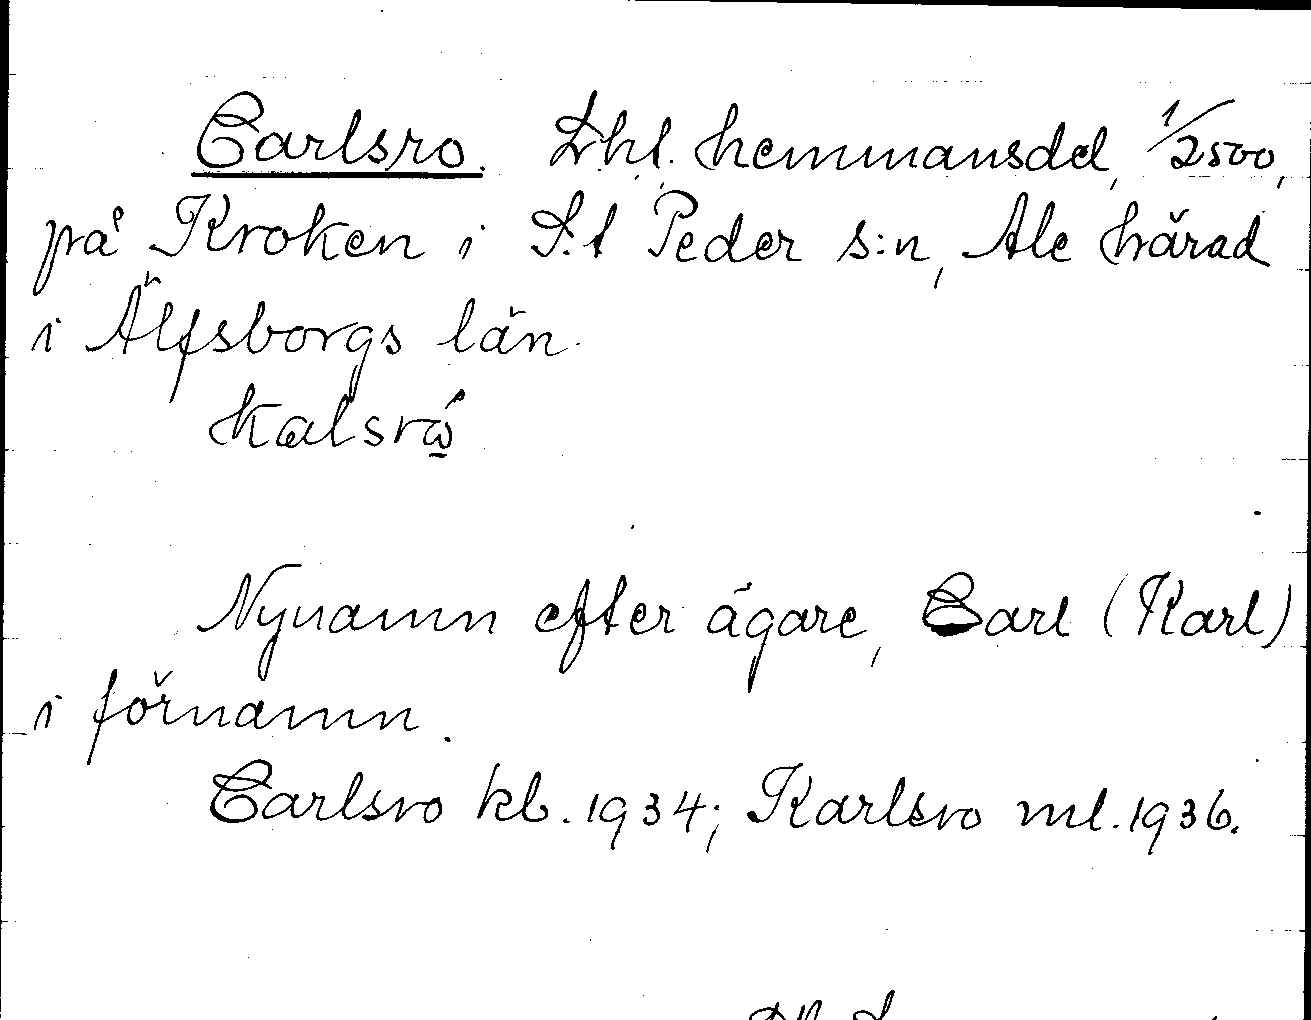 Carlsro. Lht. hemmansdel, 1/2500,
på Kroken i S:t Peder s:n, Ale härad
i Älfsborgs län.
Kalsrå̱
Nynamn efter ägare, Carl (Karl)
i förnamn.
Carlsro kb. 1934; Karlsro ml. 1936.